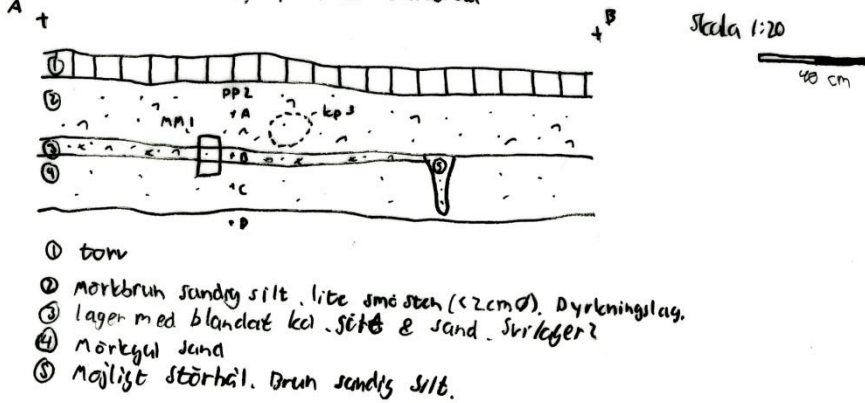 A
B
Skala 1:20
40 cm
①
②
PP2
A
kp 3
MM1
③
B
④
C
⑤
D
① torv
② Mörkbrun sandig silt. lite små sten (<2cmØ). Dyrkningslag.
③ lager med blandat kol. silt & sand. Svilager?
④ Mörkgul sand
⑤ Möjligt störhål. Brun sandig silt.